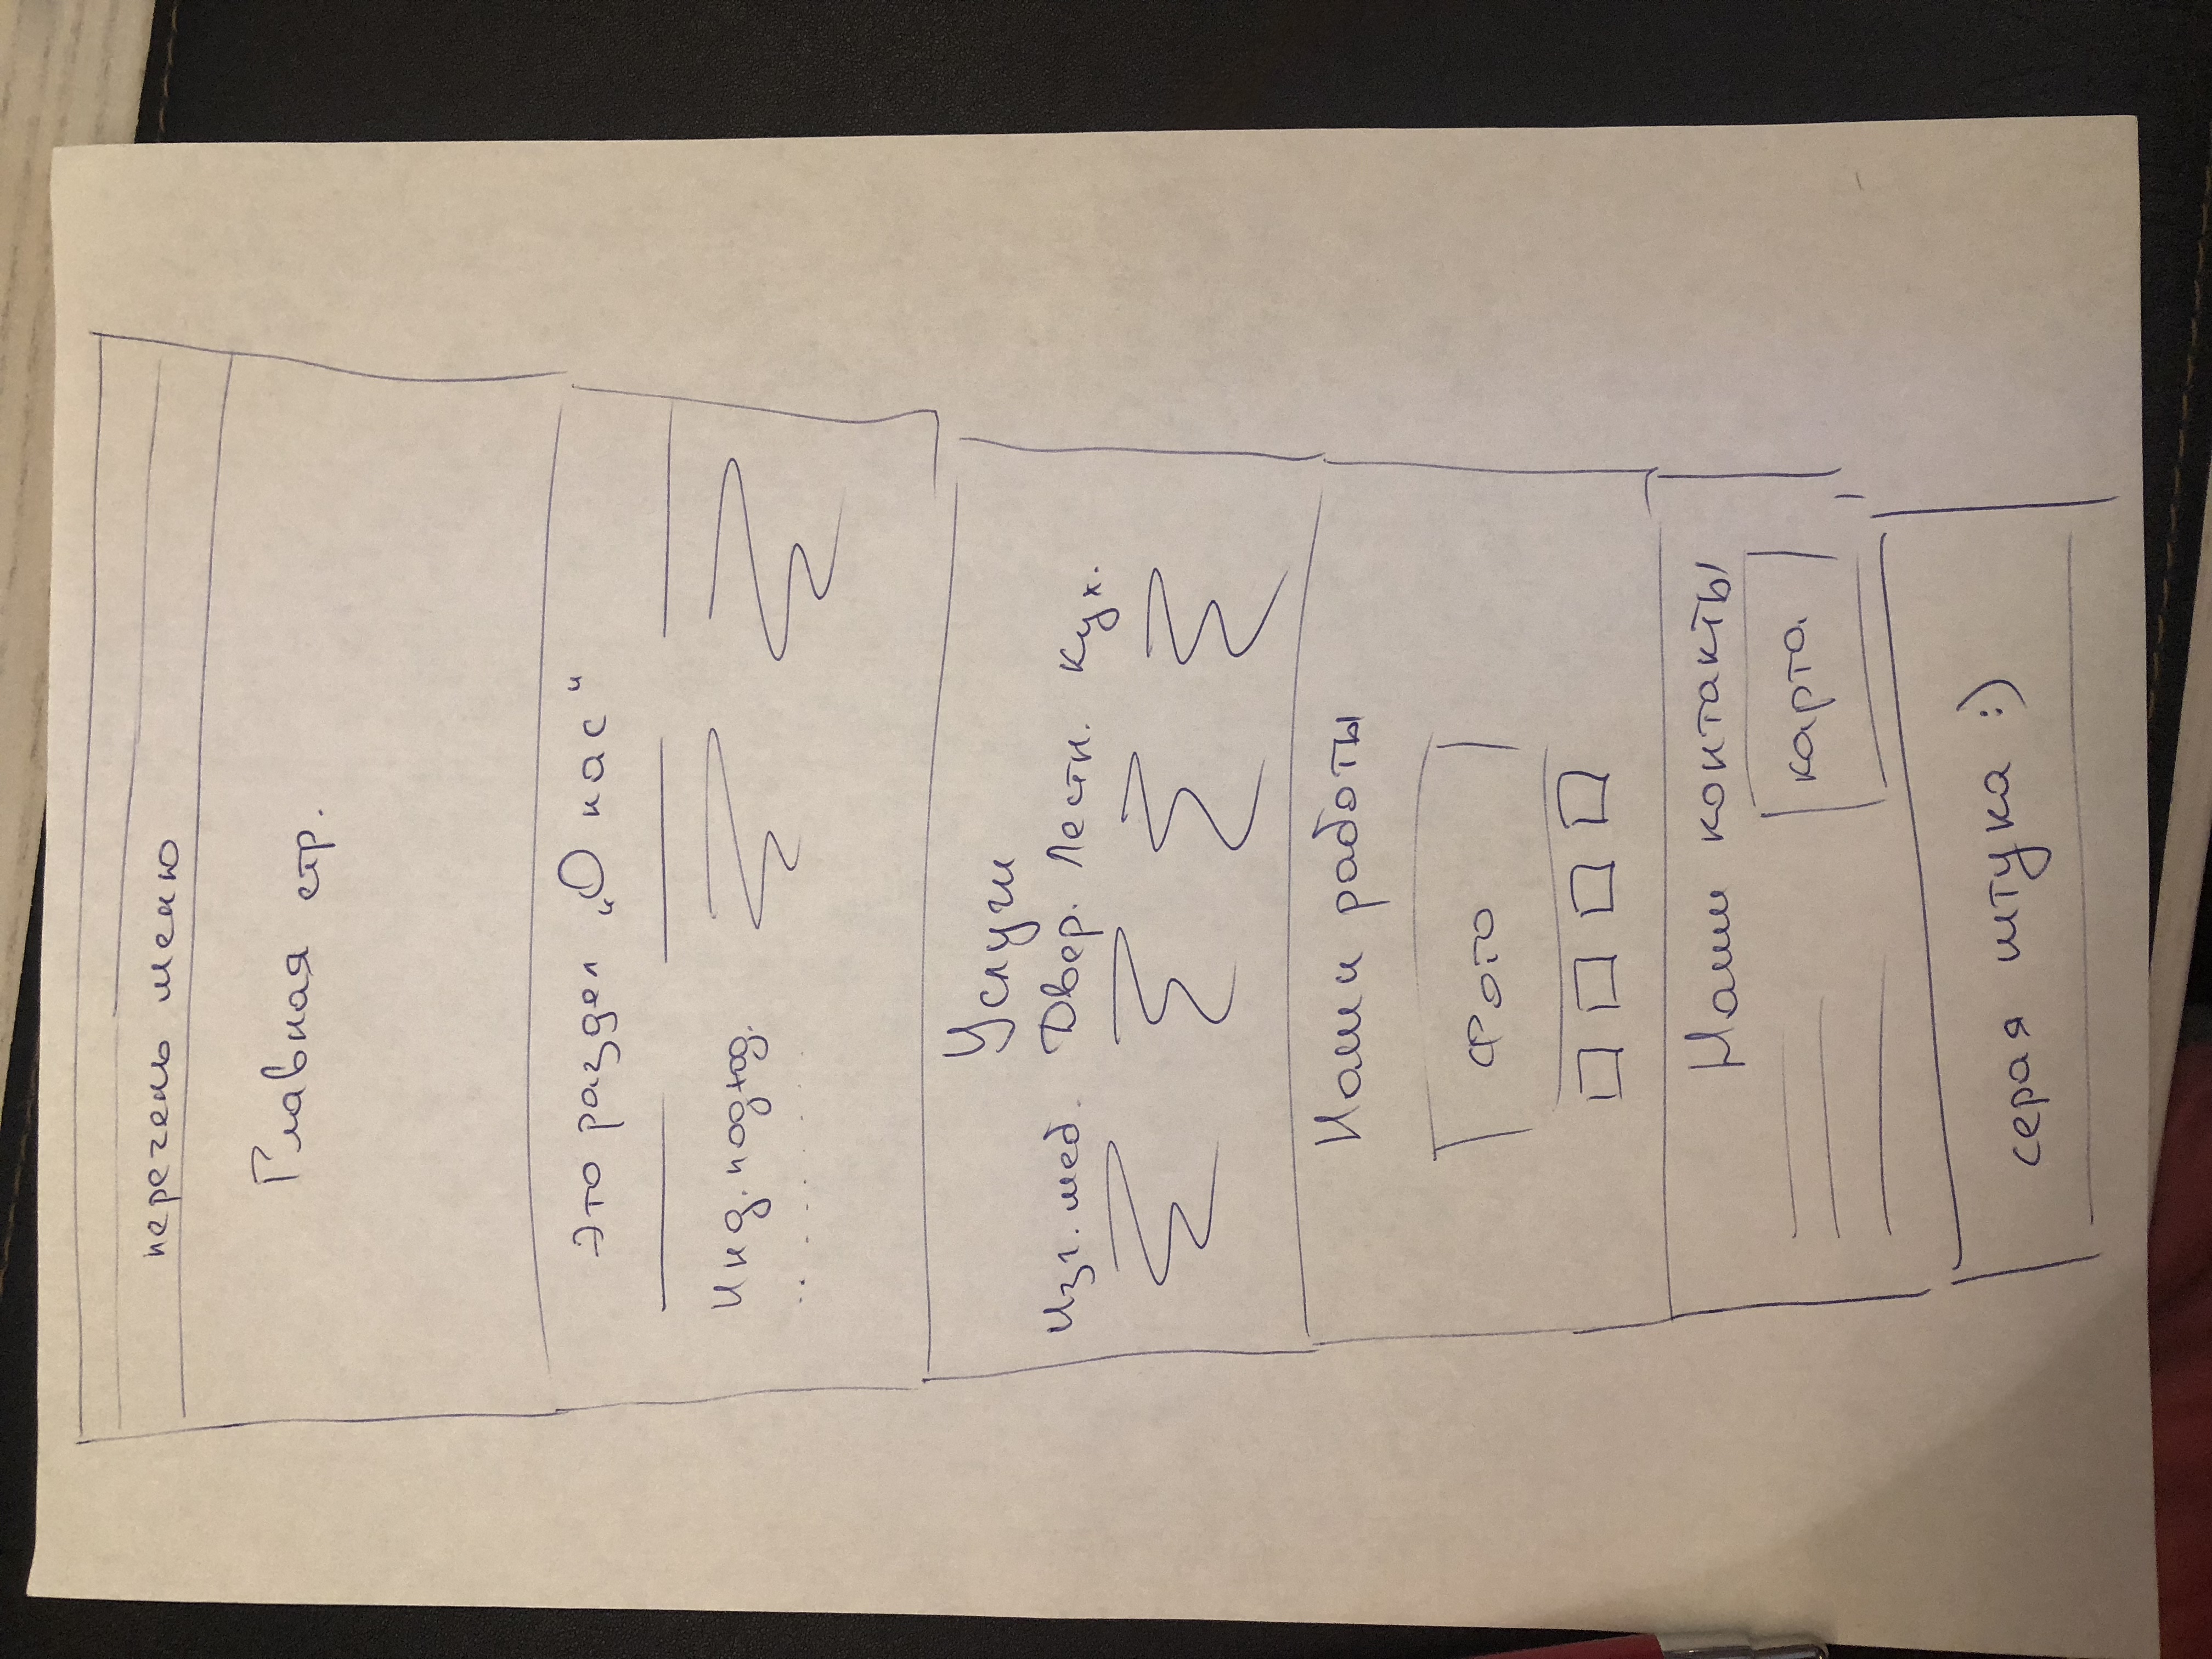 перечень меню
Главная стр.
Это раздел „О нас“
Инд. подход.
Услуги
Изг. меб. Двер. Лестн. Кух.
Наши работы
Фото
Наши контакты
карта
серая штука :)